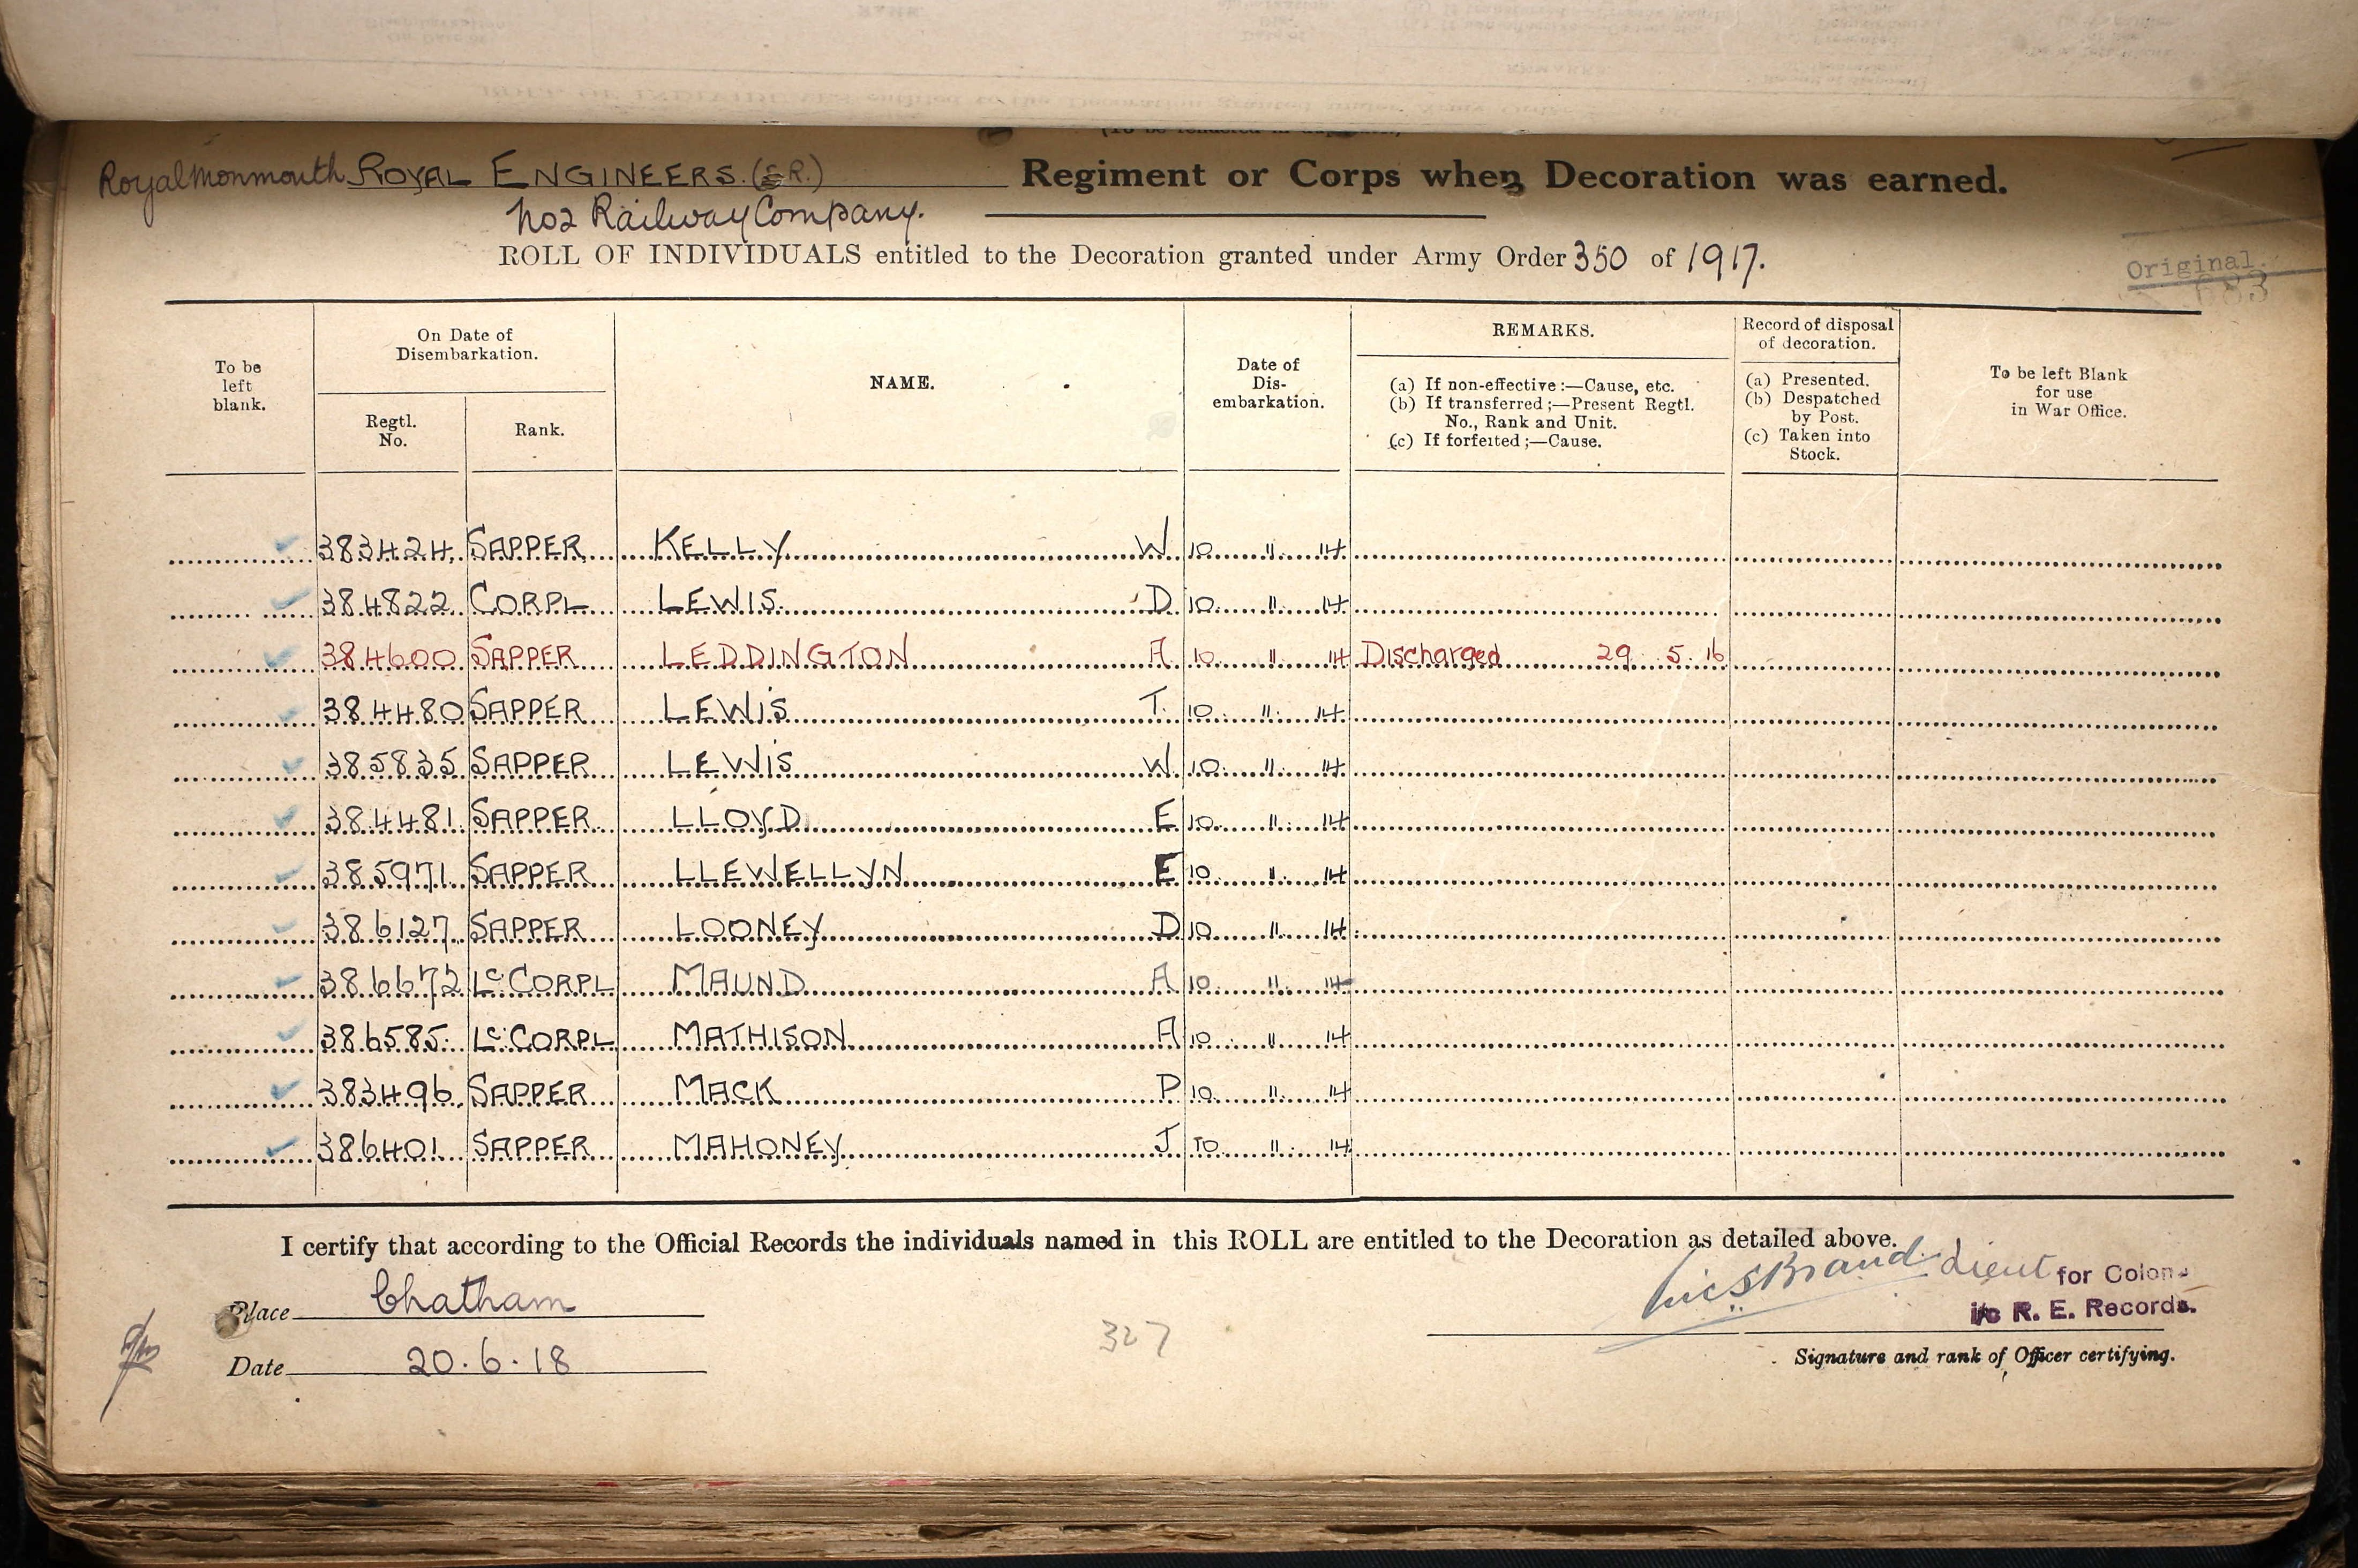 Royal Monmouth ROYAL ENGINEERS. (S.R.) Regiment or Corps when Decoration was earned.
No 2 Railway Company.
ROLL OF INDIVIDUALS entitled to the Decoration granted under Army Order 350 of 1917.
Original.
683
To be left blank.
On Date of Disembarkation.
Regtl. No.
Rank.
NAME.
Date of Dis-embarkation.
REMARKS.
(a) If non-effective:—Cause, etc.
(b) If transferred;—Present Regtl. No., Rank and Unit.
(c) If forfeited;—Cause.
Record of disposal of decoration.
(a) Presented.
(b) Despatched by Post.
(c) Taken into Stock.
To be left Blank for use in War Office.
383424 SAPPER KELLY W 10 11 14
384822 CORPL LEWIS D 10 11 14
384600 SAPPER LEDDINGTON A 10 11 14 Discharged 29 5 16
384480 SAPPER LEWIS T. 10 11 14
385835 SAPPER LEWIS W 10 11 14
384481 SAPPER LLOYD E 10 11 14
385971 SAPPER LLEWELLYN E 10 11 14
386127 SAPPER LOONEY D 10 11 14
386672 Lc CORPL MAUND A 10 11 14
386585 Lc CORPL MATHISON A 10 11 14
383496 SAPPER MACK P 10 11 14
386401 SAPPER MAHONEY J 10 11 14
I certify that according to the Official Records the individuals named in this ROLL are entitled to the Decoration as detailed above.
Place Chatham
Lieut for Colon
i/c R. E. Records.
327
Date 20.6.18
Signature and rank of Officer certifying.